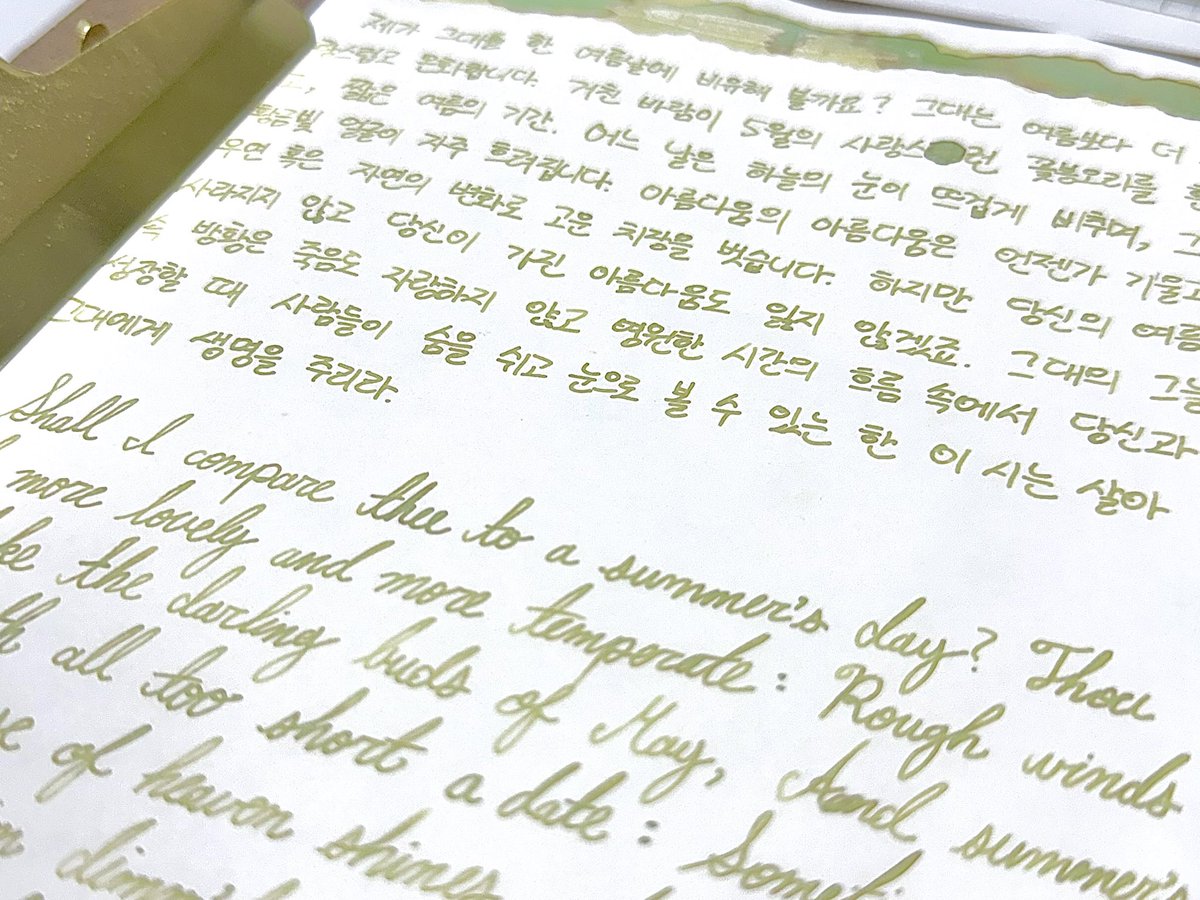 제가 그대를 한 여름날에 비유해 볼까요? 그대는 여름보다 더
스럽고 온화합니다. 거친 바람이 5월의 사랑스런 꽃봉오리를
짧은 여름의 기간. 어느 날은 하늘의 눈이 뜨겁게 비추며, 그
황금빛 얼굴이 자주 흐려집니다. 아름다움의 아름다움은 언젠가 기울고
우연 혹은 자연의 변화로 고운 치장을 벗습니다. 하지만 당신의 여름
사라지지 않고 당신이 가진 아름다움도 잃지 않겠죠. 그대의 그늘
속 방황은 죽음도 자랑하지 않고 영원한 시간의 흐름 속에서 당신과
성장할 때 사람들이 숨을 쉬고 눈으로 볼 수 있는 한 이 시는 살아
그대에게 생명을 주리라.
Shall I compare thee to a summer's day? Thou
more lovely and more temperate: Rough winds
the darling buds of May, And summer's
all too short a date: Someti
of heaven shines
dimm'd